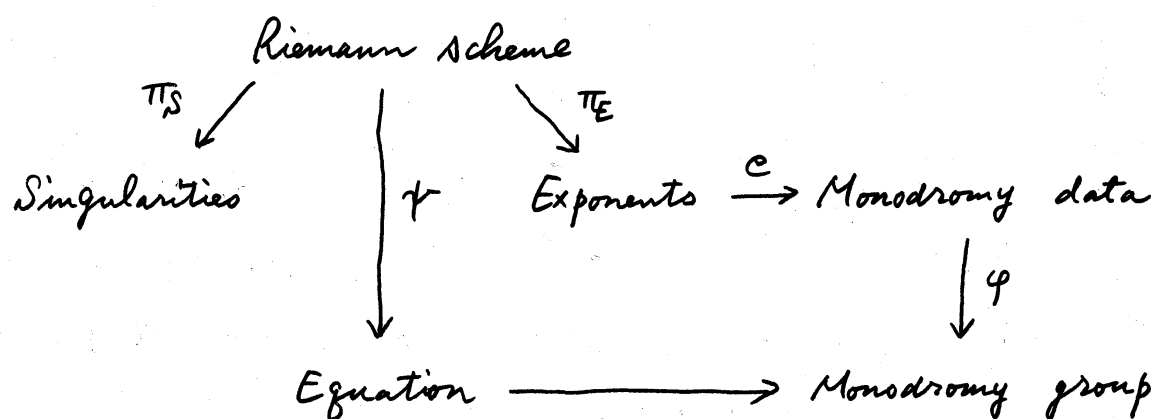 Riemann scheme
π_S π_E
Singularities ψ Exponents e Monodromy data
φ
Equation Monodromy group